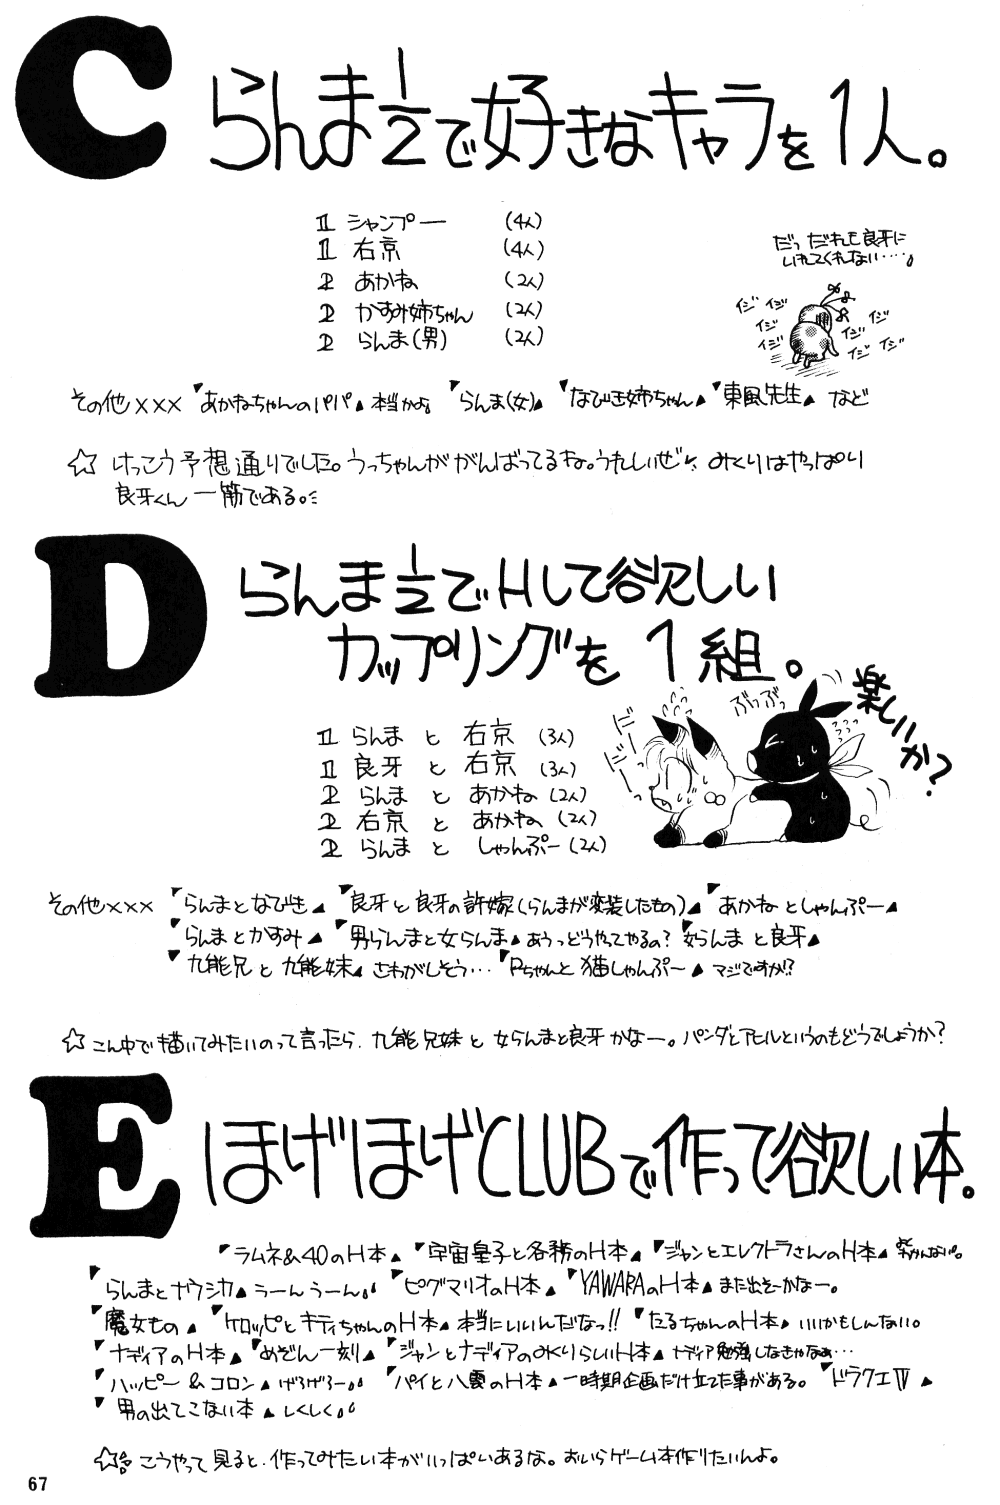 C
らんま½で好きなキャラを1人。
1 シャンプー (4人)
1 右京 (4人)
2 あかね (2人)
2 かすみ姉ちゃん (2人)
2 らんま(男) (2人)
だっ だれも良牙に
いれてくれない・・・・。
イジ イジ イジ イジ イジ イジ イジ イジ
その他××× 「あかねちゃんのパパ」本当かよ 「らんま(女)」 「なびき姉ちゃん」 「東風先生」 など
☆ けっこう予想通りでした。うっちゃんががんばってるね。うれしいぜ みくりはやっぱり
良牙くん 一筋である。
D
らんま½でHして欲しい
カップリングを1組。
1 らんま と 右京 (3人)
1 良牙 と 右京 (3人)
2 らんま と あかね (2人)
2 右京 と あかね (2人)
2 らんま と しゃんぷー (2人)
ぶっぶっ
楽しいか?
その他××× 「らんまとなびき」 「良牙と良牙の許嫁(らんまが変装したもの)」 「あかねとしゃんぷー」
「らんまとかすみ」 「男らんまと女らんま」あうっどうやってやるの? 「女らんまと良牙」
「九能兄と九能妹」さわがしそう… 「Pちゃんと猫しゃんぷー」マジですか!?
☆ こん中で描いてみたいのって言ったら、九能兄妹と女らんまと良牙かなー。パンダとアヒルというのもどうでしょうか?
E
ほげほげCLUBで作って欲しい本。
「ラムネ&40のH本」 「宇宙皇子と各務のH本」 「ジャンとエレクトラさんのH本」
「らんまとナウシカ」うーんうーん。。 「ピグマリオのH本」 「YAWARAのH本」また出そーかなー。
「魔女もの」 「ケロッピとキティちゃんのH本」本当にいいんだなっ!! 「たるちゃんのH本」いいかもしんない。
「ナディアのH本」 「めぞん一刻」 「ジャンとナディアのみくりらしいH本」ナディア勉強しなきゃなぁ…
「ハッピー&コロン」げろげろー。。 「パイと八雲のH本」一時期企画だけ立てた事がある。 「ドラクエIV」
「男の出てこない本」しくしく。。
☆ こうやって見ると、作ってみたい本がいっぱいあるな。おいらゲーム本作りたいんよ。
67